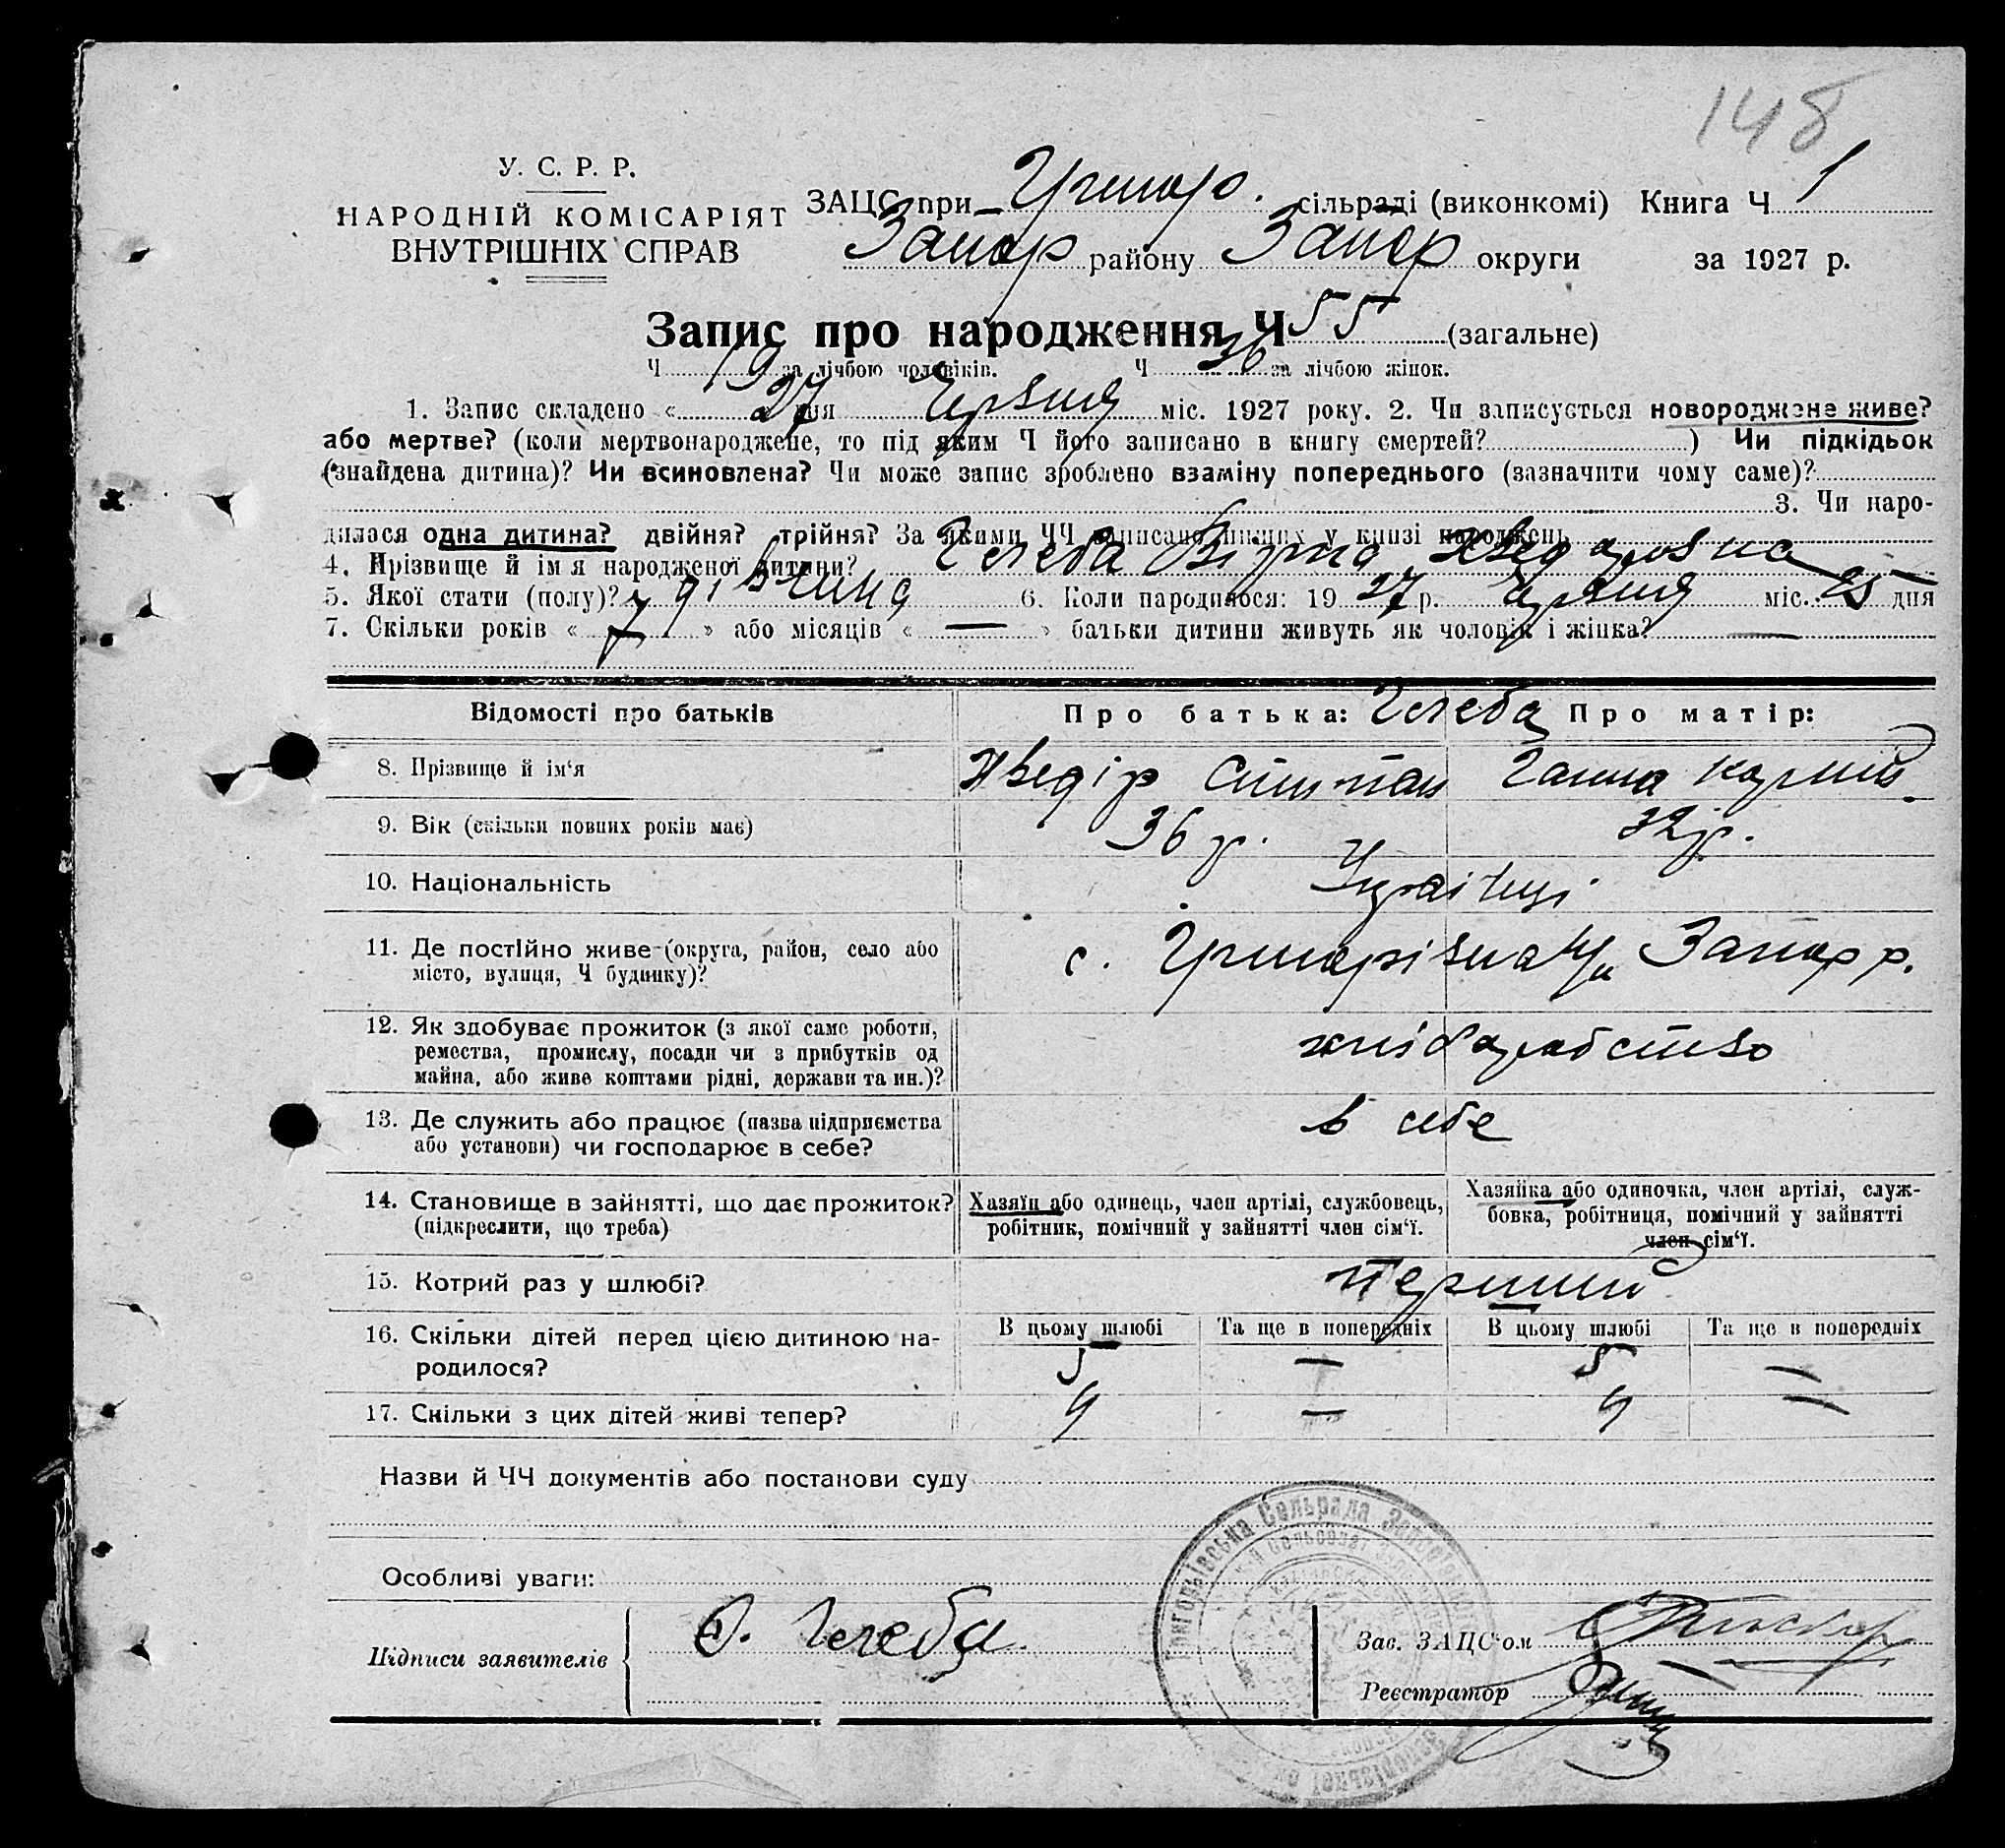 148
У. С. Р. Р.
НАРОДНІЙ КОМІСАРІЯТ
ВНУТРІШНІХ СПРАВ
ЗАЦС при Григор. сільраді (виконкомі) Книга Ч 1
Запор району Запор округи за 1927 р.
Запис про народження Ч 55 (загальне)
Ч 19 за лічбою чоловіків. Ч 36 за лічбою жінок.
1. Запис складено « 27 » дня Червня міс. 1927 року. 2. Чи записується новороджене живе?
або мертве? (коли мертвонароджене, то під яким Ч його записано в книгу смертей? ) Чи підкідьок
(знайдена дитина)? Чи всиновлена? Чи може запис зроблено взаміну попереднього (зазначити чому саме)?
3. Чи наро-
дилася одна дитина? двійня? трійня? За якими ЧЧ записано инших у книзі народжень
4. Прізвище й ім'я народженої дитини? Челеба Віра Хведоровна
5. Якої стати (полу)? дівчина 6. Коли народилося: 19 27 р. Червня міс. 25 дня
7. Скільки років « 7 » або місяців « — » батьки дитини живуть як чоловік і жінка? —
Відомості про батьків
Про батька: Челеба Про матір:
8. Прізвище й ім'я Хведір Степан Ганна
9. Вік (скільки повних років має) 36 р. 32 р.
10. Національність Українці
11. Де постійно живе (округа, район, село або
місто, вулиця, Ч будинку)? с. Григорівка Запор р.
12. Як здобуває прожиток (з якої саме роботи,
ремества, промислу, посади чи з прибутків од
майна, або живе коштами рідні, держави та ин.)? хліборобство
13. Де служить або працює (назва підприємства
або установи) чи господарює в себе? в себе
14. Становище в зайнятті, що дає прожиток?
(підкреслити, що треба)
Хазяїн або одинець, член артілі, службовець,
робітник, помічний у зайнятті член сім'ї.
Хазяйка або одиночка, член артілі, служ-
бовка, робітниця, помічний у зайнятті
член сім'ї.
15. Котрий раз у шлюбі? перший
16. Скільки дітей перед цією дитиною на-
родилося?
В цьому шлюбі Та ще в попередніх В цьому шлюбі Та ще в попередніх
5 — 5 —
17. Скільки з цих дітей живі тепер? 4 — 4 —
Назви й ЧЧ документів або постанови суду
Особливі уваги:
Підписи заявителів Ф. Челеба
Зав. ЗАЦС'ом
Реєстратор
Григорьівська Сельрада